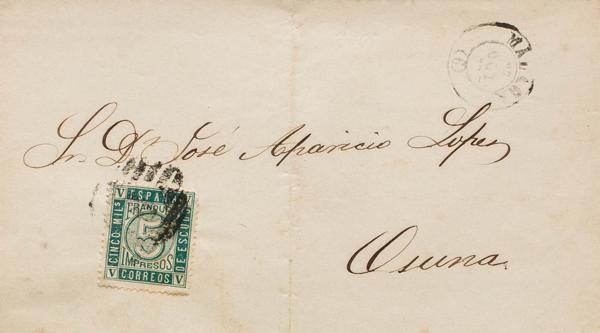 Sr. Dn. José Aparicio Lopez
Osuna.
ESPAÑA
FRANQUEO
CINCO MILS
DE ESCUDO
5
IMPRESOS
CORREOS
V V
V V